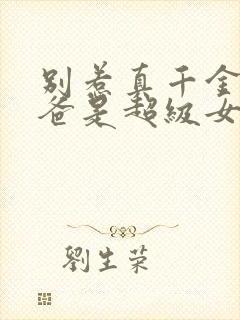 别惹真千金
爸是超级女
劉生荣